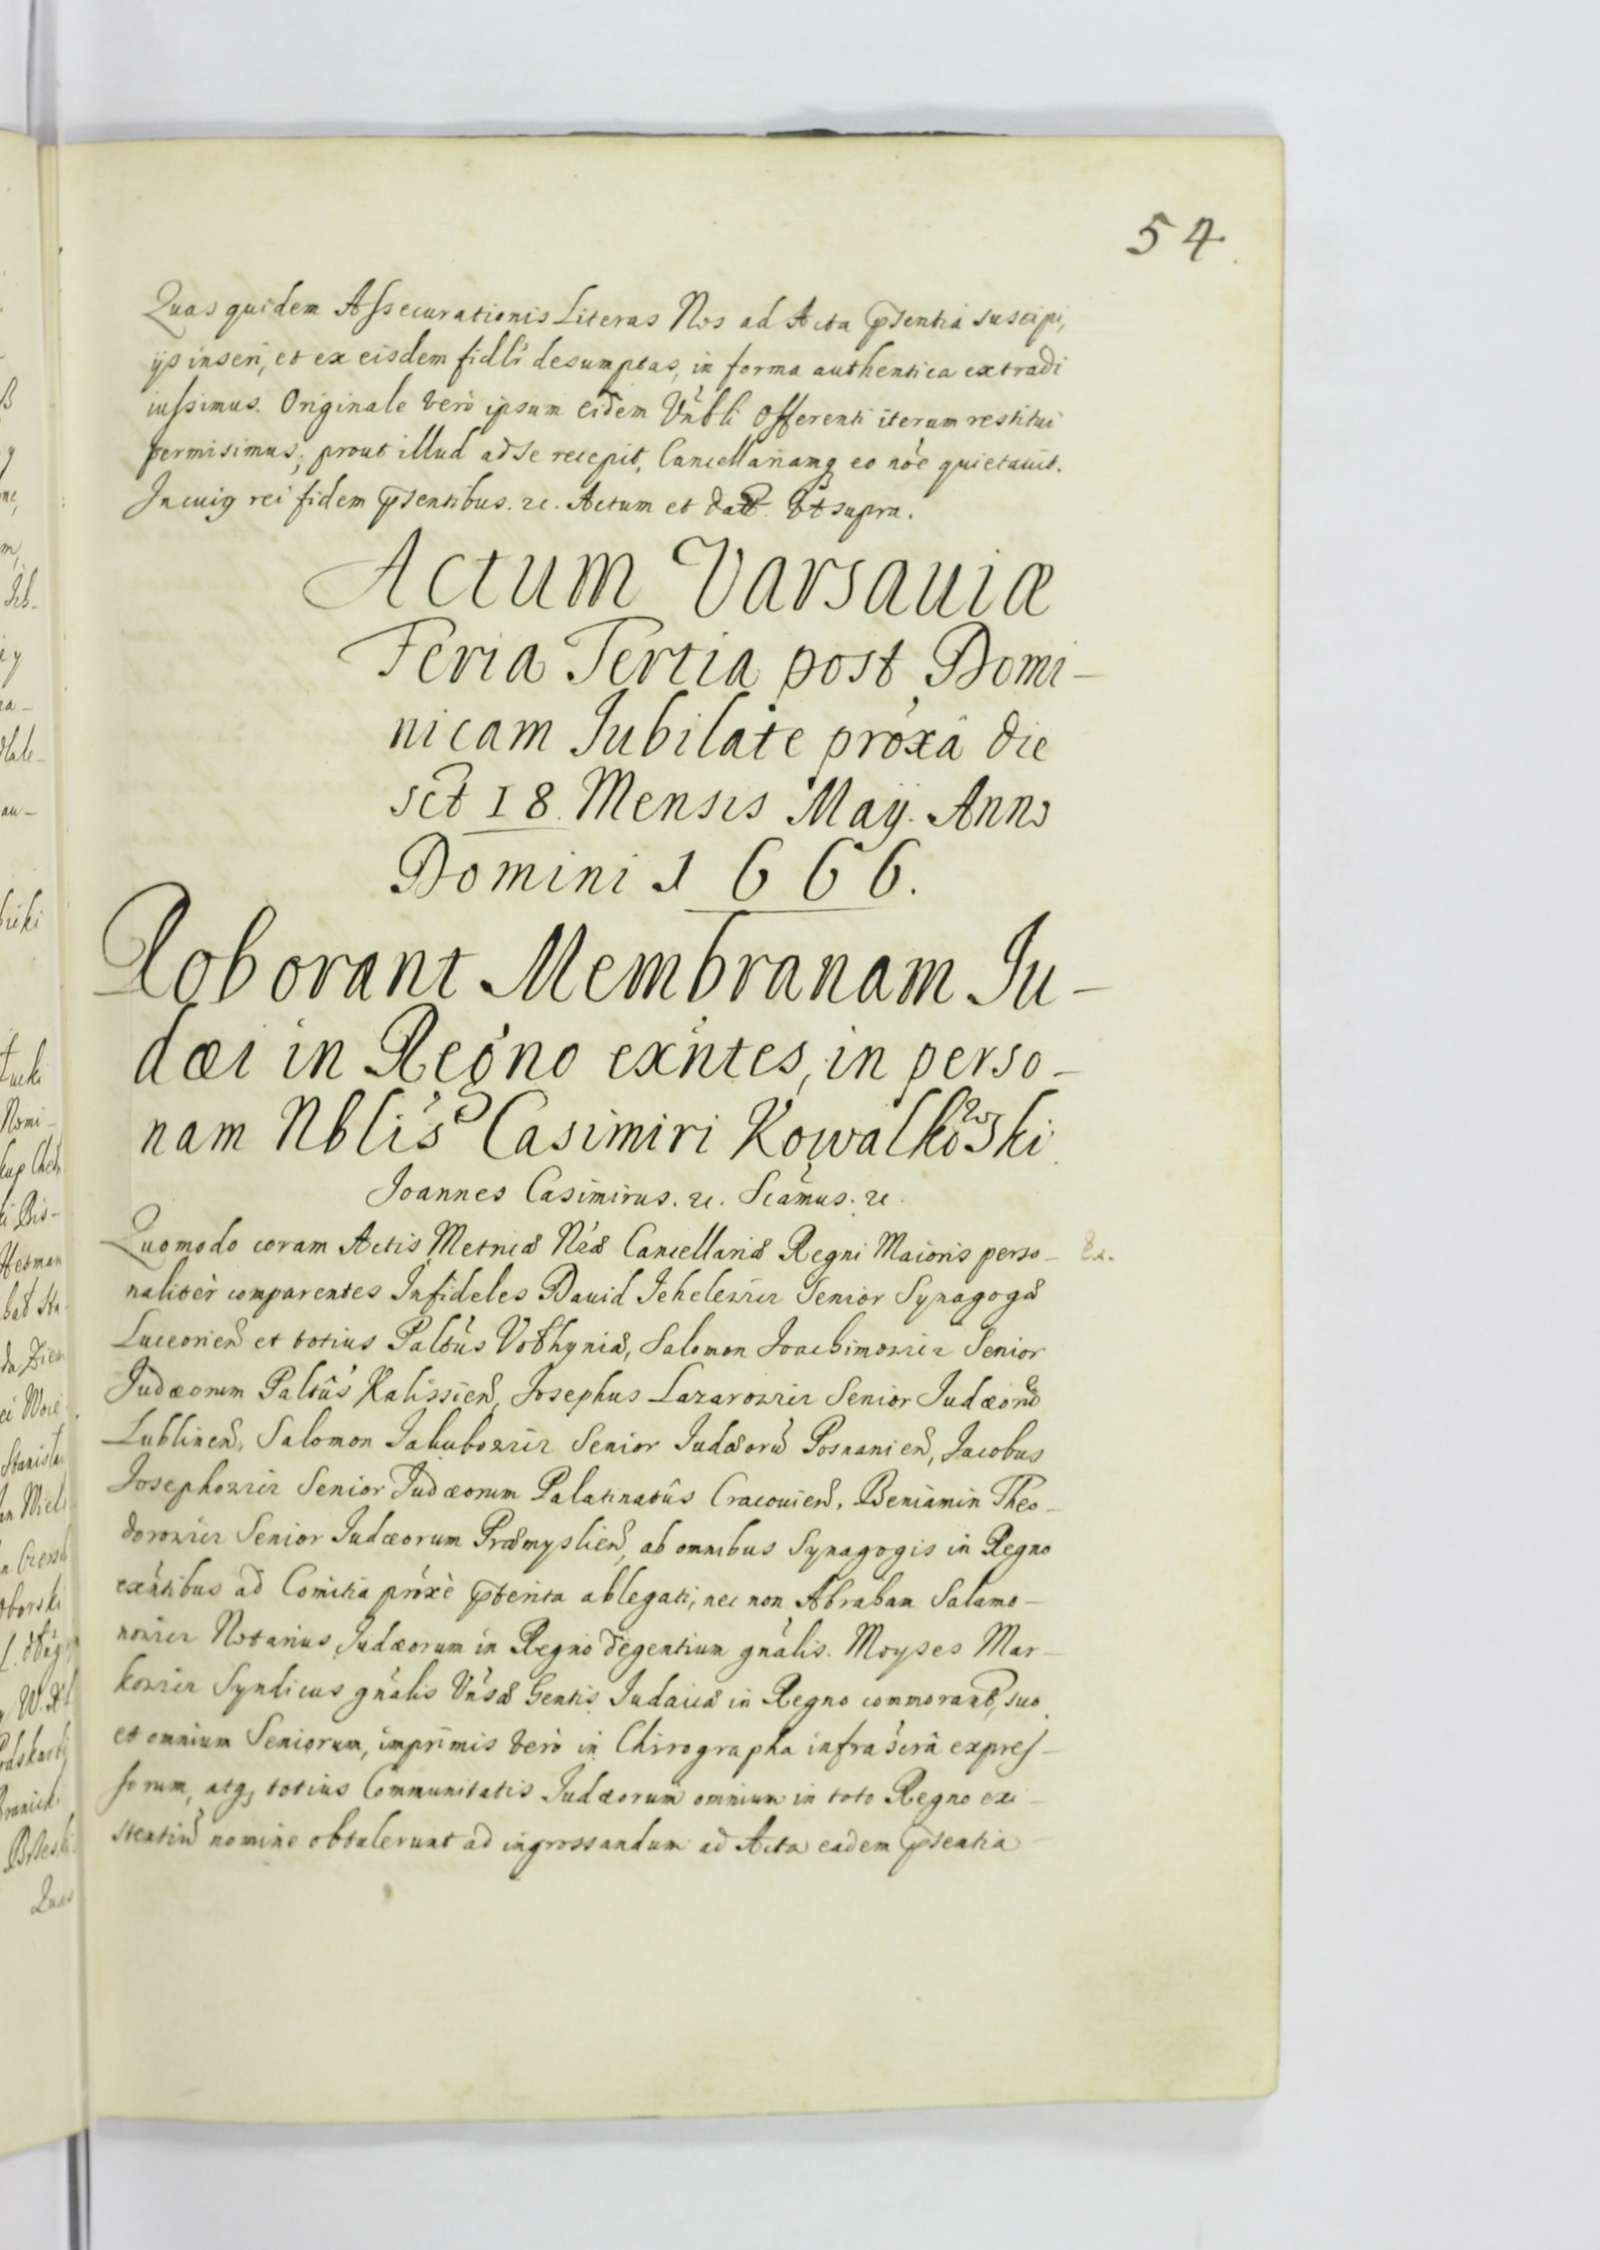 54.
Quas quidem Assecurationis Literas Nos ad Acta pñtia suscipi,
ijs inseri, et ex eisdem fidłr desumptas, in forma authentica extradi
iussimus. Originale verò ipsum eidem Vrbli Offerenti iterum restitui
permisimus; prout illud ad se recepit, Cancellariamq; eo nôe quietauit.
In cuiq rei fidem pñsentibus. zc. Actum et dat. Vt supra.
Actum Varsauiæ
Feria Tertia post Domi-
nicam Iubilate próxâ die
sct 18. Mensis Maÿ. Anno
Domini 1666.
Roborant Membranam Iu-
dæi in Regno exńtes, in perso-
nam Nblis Casimiri Kowalkowski
Joannes Casimirus. zc. Scámus. zc.
Quomodo coram Actis Metricæ Nræ Cancellariæ Regni Maioris perso-
nalitèr comparentes Infideles Dauid Jehelewicz Senior Synagogæ
Luceorień et totius Paltûs Volhyniæ, Salomon Joachimowicz Senior
Judæorum Paltûs Kalissień, Josephus Lazarowicz Senior Judæorũ
Lublineń, Salomon Jakubowicz Senior Judæorũ Posnanień, Jacobus
Josephowicz Senior Judæorum Palatinatûs Cracouień, Beniamin Theo-
dorowicz Senior Judæorum Præmyslień, ab omnibus Synagogis in Regno
exńtibus ad Comitia próxè pterita ablegati, nec non Abraham Salamo-
nowicz Notarius Judæorum in Regno degentium gnalis. Moyses Mar-
kowicz Syndicus gnalis Vnsæ Gentis Judaicæ in Regno commorant, suo
et omnium Seniorum, imprimis verò in Chirographa infra scrã expres-
sorum, atq; totius Communitatis Judæorum omnium in toto Regno exi-
stentiũ nomine obtulerunt ad ingrossandum ad Acta eadem pñsentia